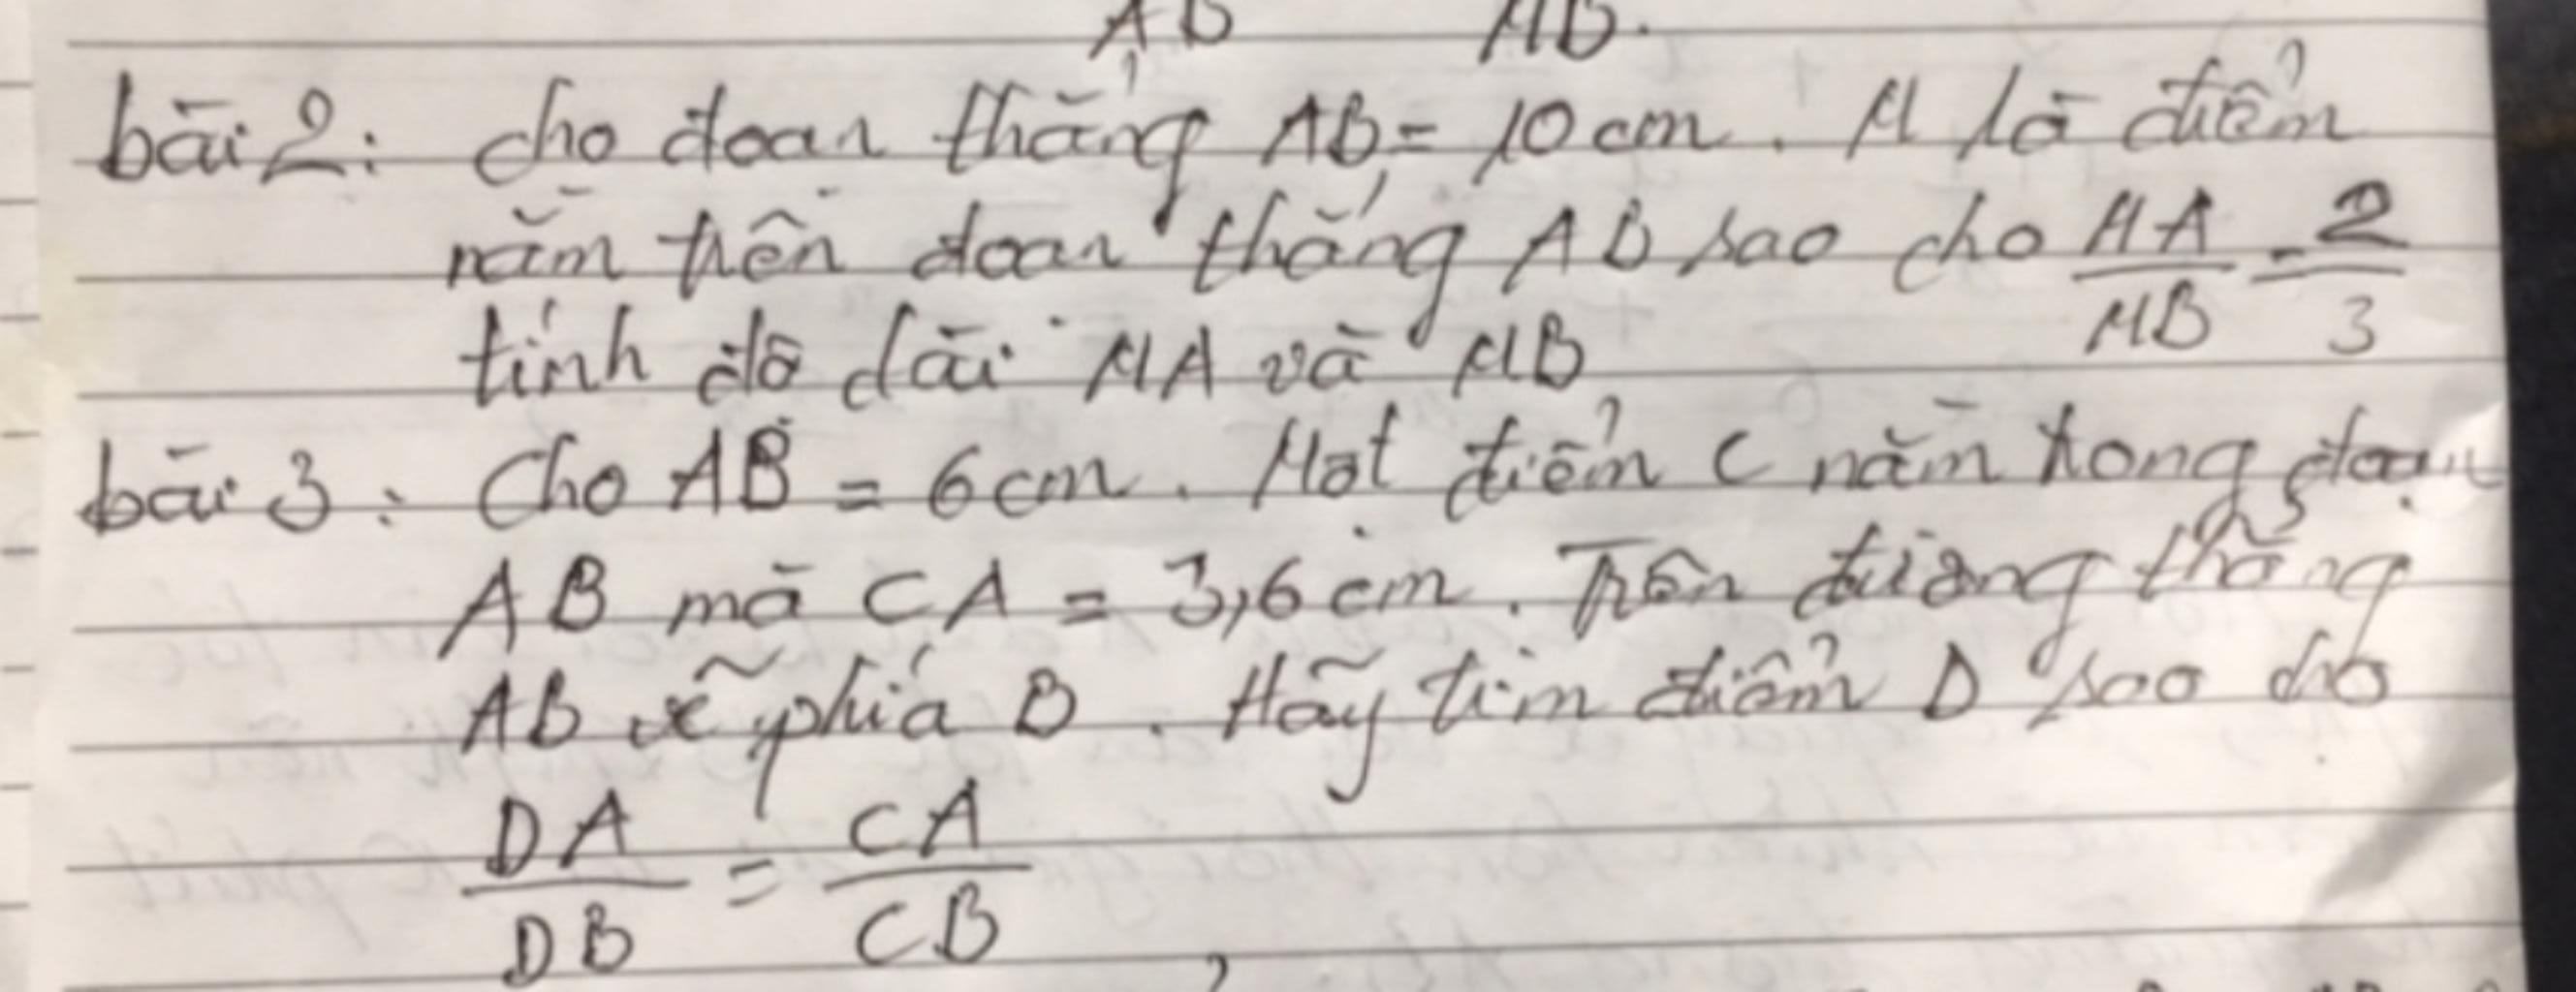 AB AB.
bài 2: cho đoạn thẳng AB = 10 cm. M là điểm
nằm trên đoạn thẳng AB sao cho MA/MB = 2/3
tính độ dài MA và MB
bài 3: Cho AB = 6 cm. Một điểm C nằm trong đoạn
AB mà CA = 3,6 cm. Trên đường thẳng
AB về phía B. Hãy tìm điểm D sao cho
DA/DB = CA/CB